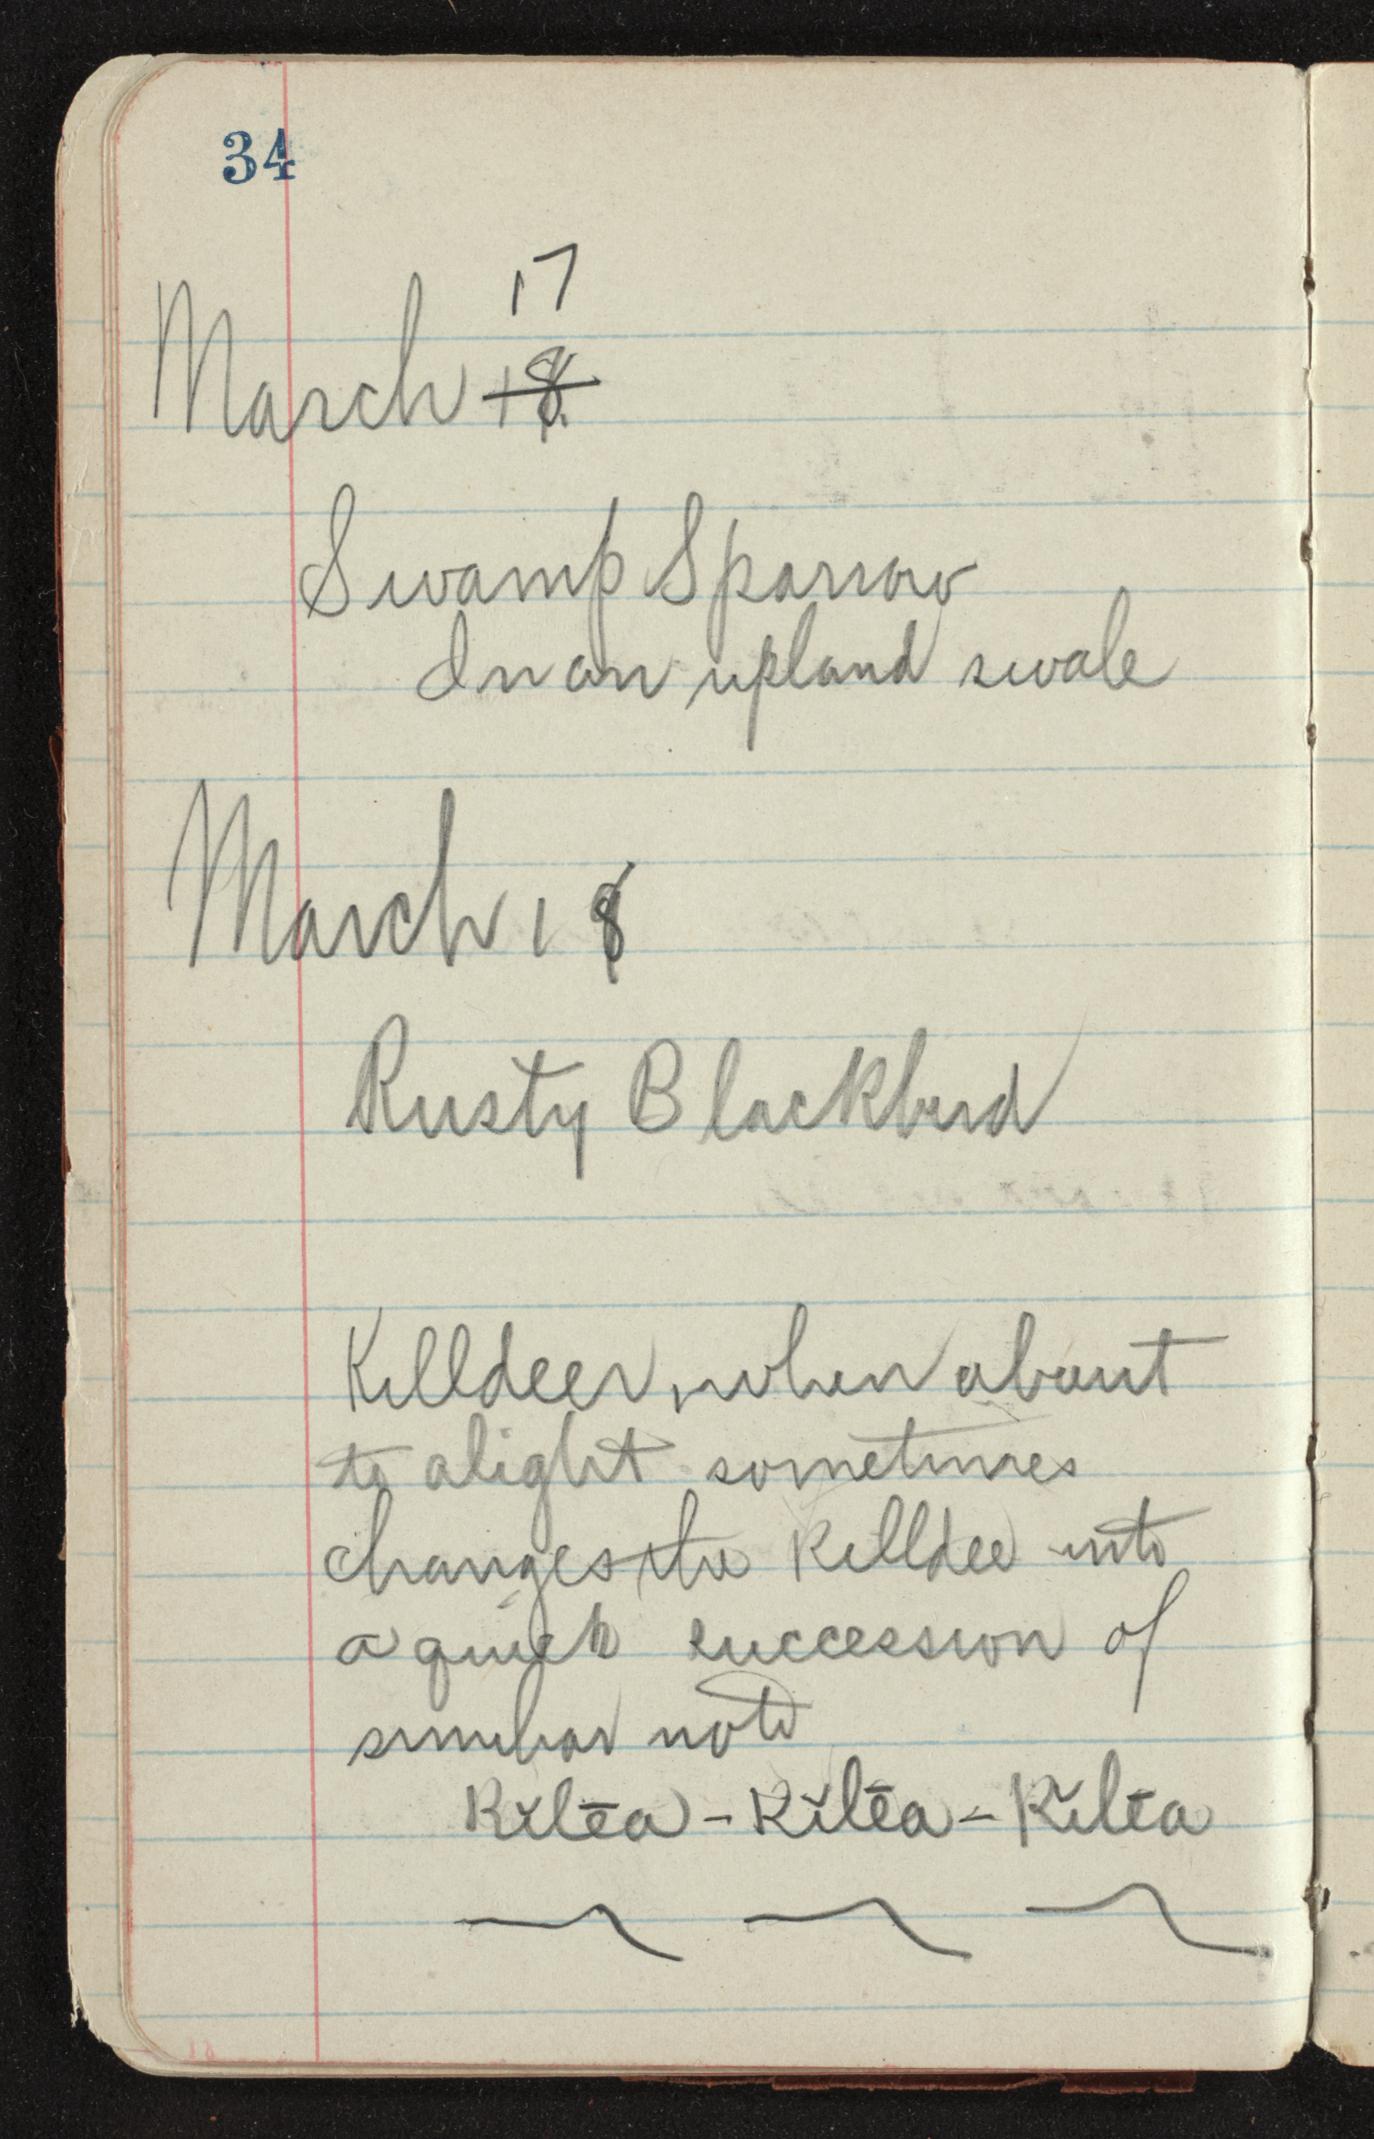 34
17
March 18.
Swamp Sparrow
In an upland swale
March 18
Rusty Blackbird
Killdeer, when about
to alight sometimes
changes the Killdee into
a quick succession of
similar note
Kĭlēa - Kĭlēa - Kĭlēa